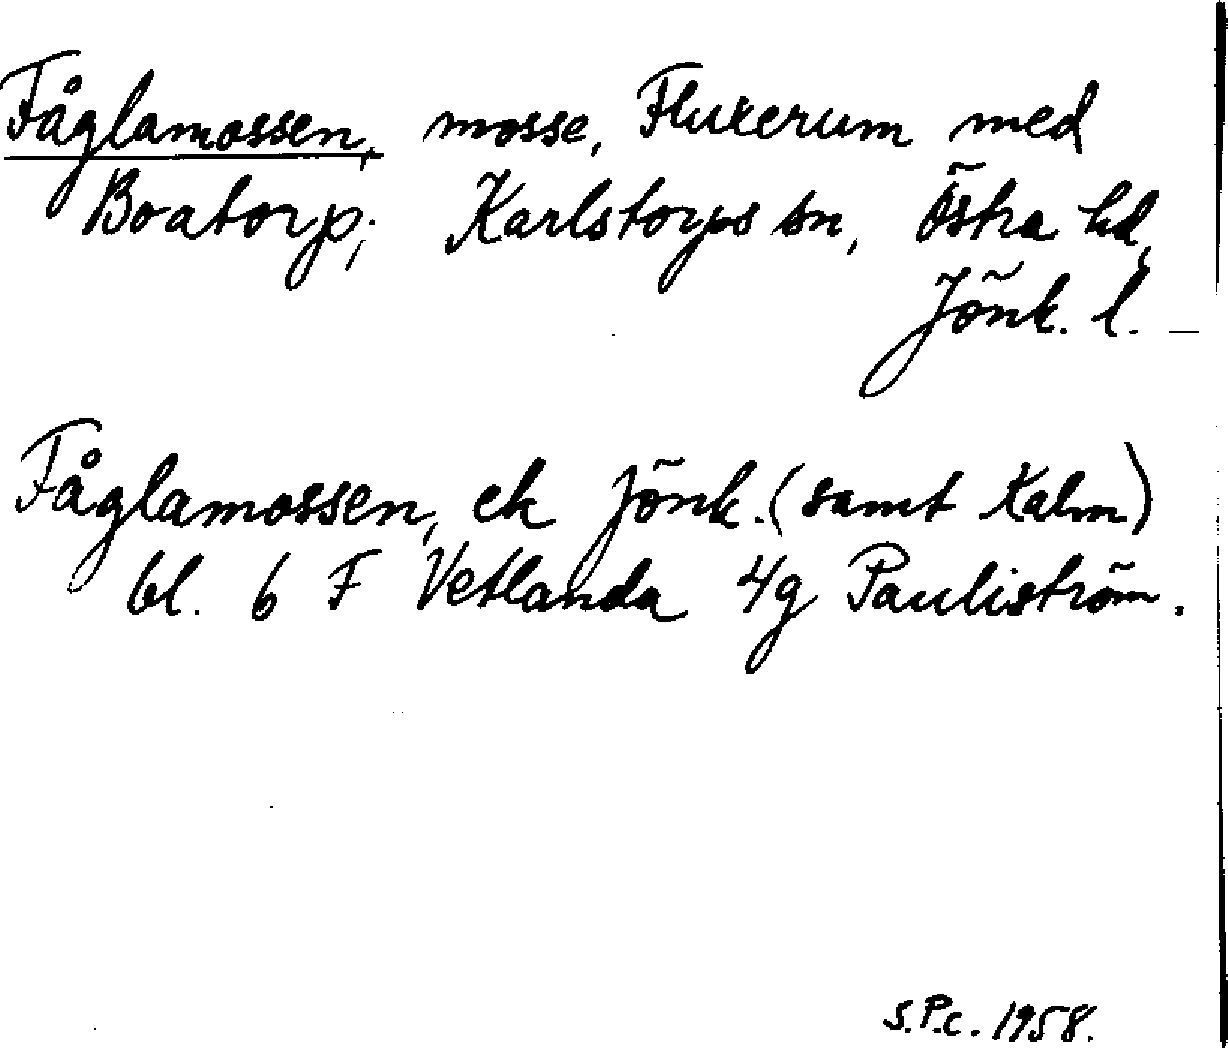 Fåglamossen, mosse, Fluxerum med
Boatorp; Karlstorps sn, Östra hd,
Jönk. l. —
Fåglamossen, ek Jönk. (samt Kalm)
bl. 6 F Vetlanda 4g Pauliström.
S.P.c. 1958.